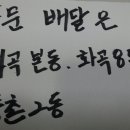 문 배달 은
곡 본동. 화곡8
촌2동